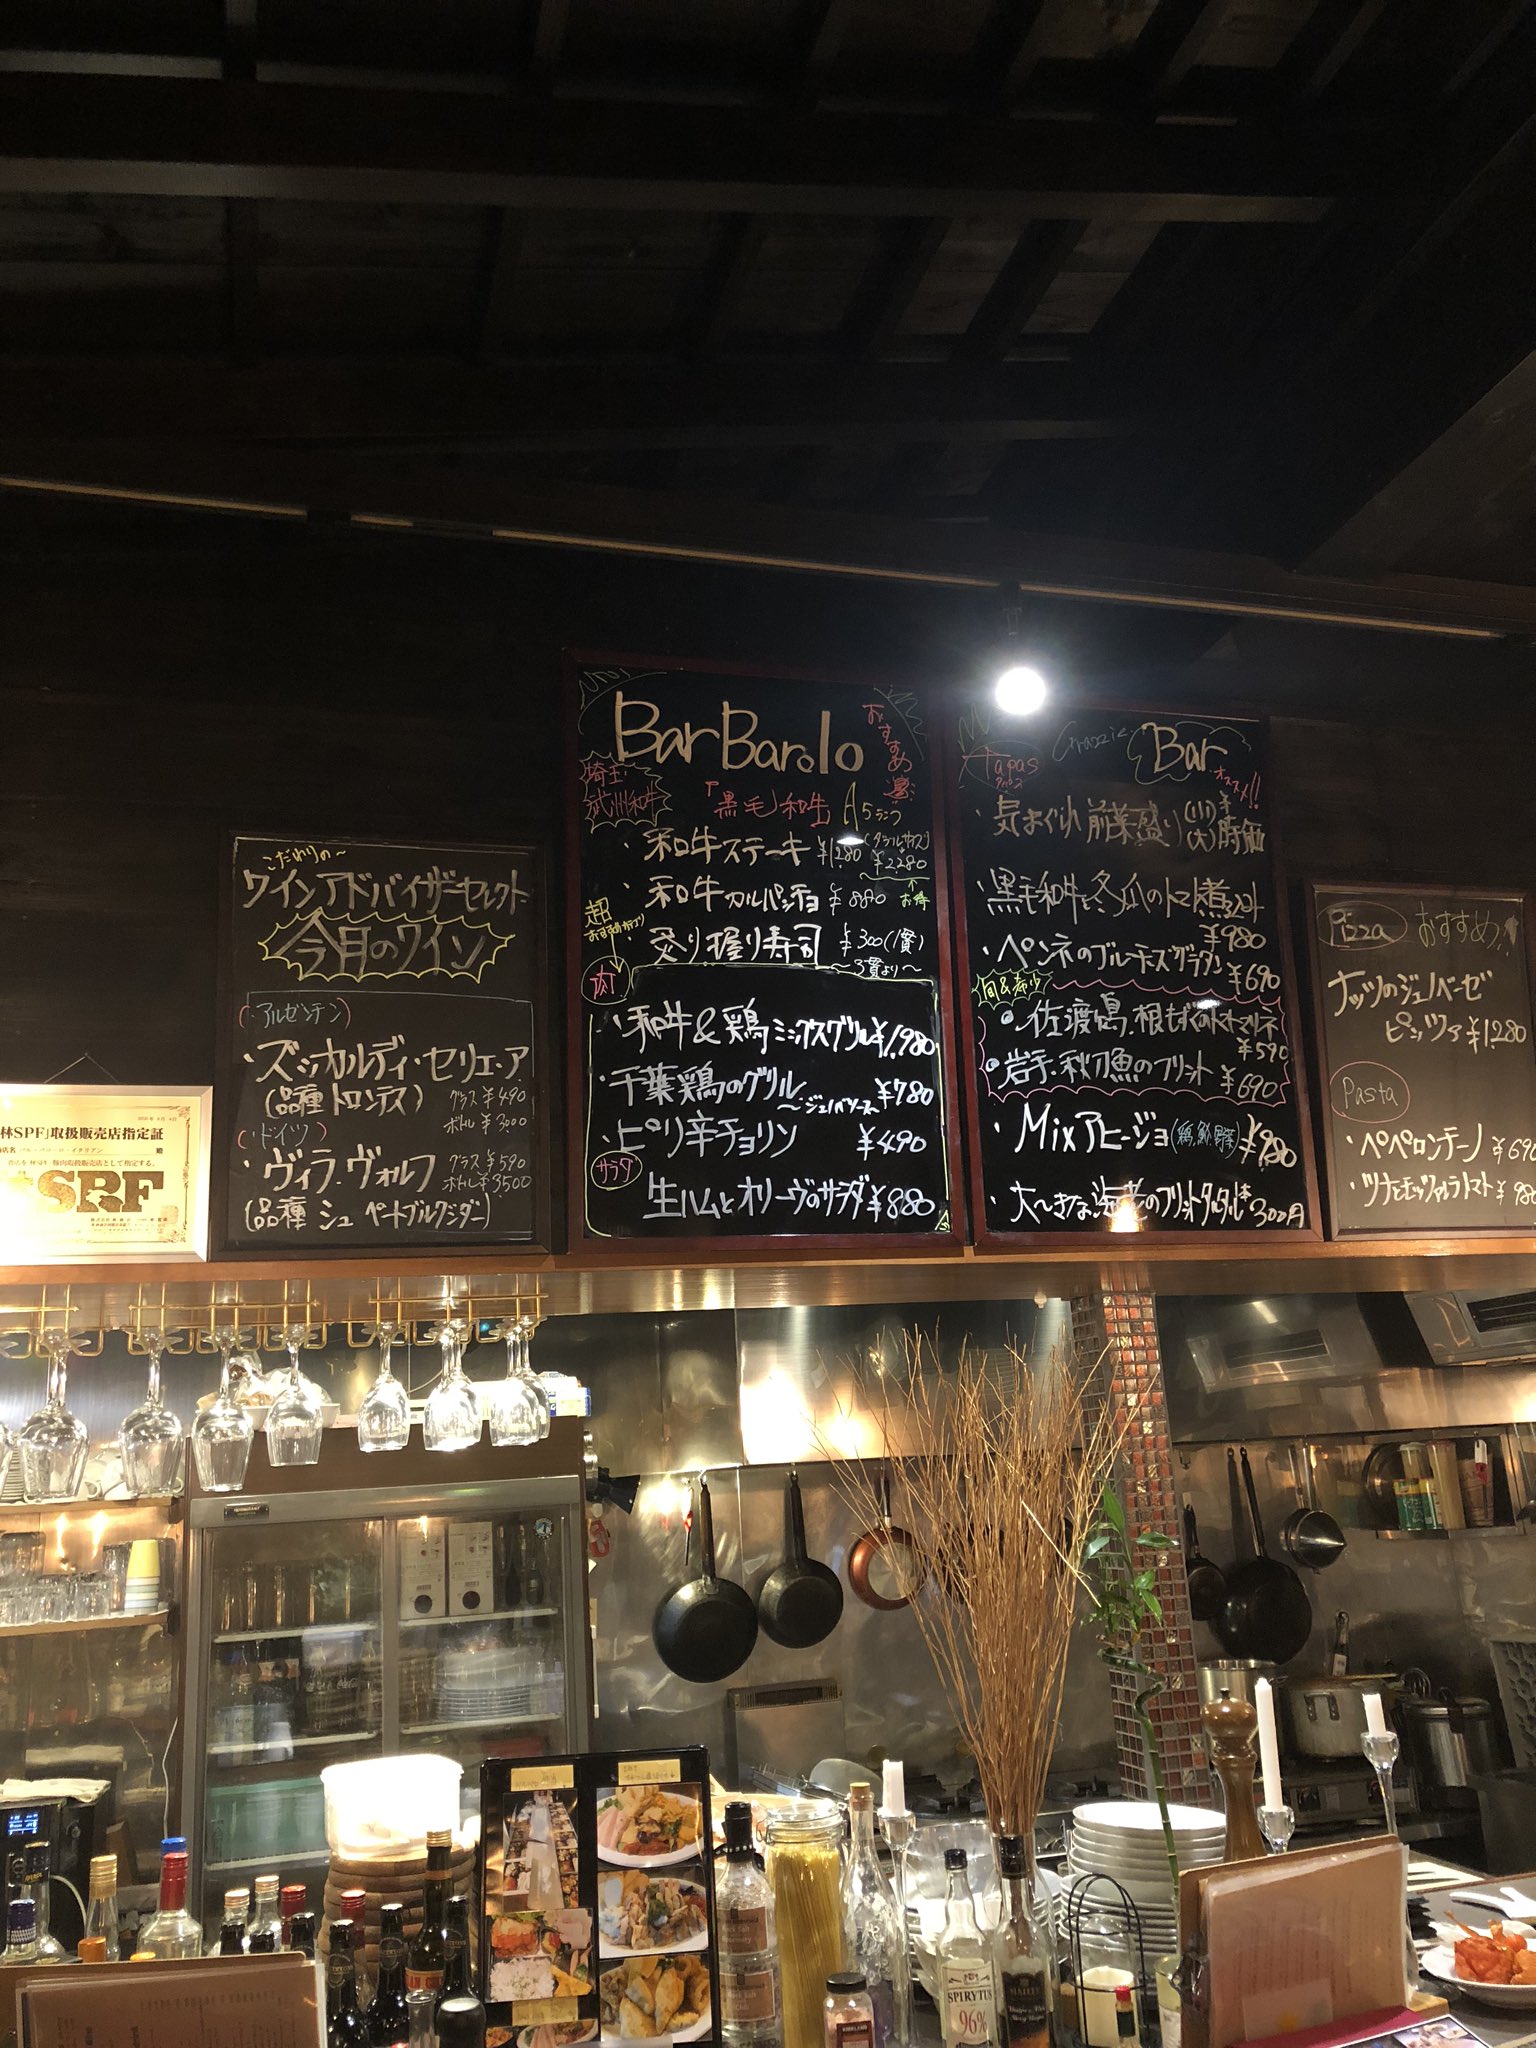 こだわりの~
ワインアドバイザーセレクト
今月のワイン
(アルゼンチン)
・ズッカルディ・セリエ・ア
(品種 トロンテス)
グラス ¥490
ボトル ¥3000
(ドイツ)
・ヴィラ・ヴォルフ
グラス ¥590
ボトル ¥3,500
(品種 シュペートブルグンダー)
林SPF」取扱販売店指定証
SPF
Bar Barolo
おすすめ
埼玉
武州和牛
「黒毛」和牛 A5ランク
・和牛ステーキ ¥1280 (ダブルサイズ) ¥2280
お得
・和牛カルパッチョ ¥880
・炙り握り寿司 ¥300(1貫)
~3貫より~
超
肉
・和牛&鶏ミックスグリル ¥1,980
・千葉鶏のグリル ¥780
~ジェノバソース
・ピリ辛チョリソ ¥490
サラダ
・生ハムとオリーヴのサラダ ¥880
Tapas
タパス
Grazie
Bar
オススメ!!
・気まぐれ前菜盛り (小)(大) 時価
・黒毛和牛と冬瓜のトマト煮込み ¥980
・ペンネのブルーチーズグラタン ¥690
旬&希少
・佐渡島・根もずくのトマトマリネ ¥590
・岩手・秋刀魚のフリット ¥690
・Mixアヒージョ
・大~きな海老のフリットタルタル 1本300円
Pizza おすすめ!
ナッツのジェノベーゼ
ピッツァ ¥1280
Pasta
・ペペロンチーノ ¥690
・ツナとモッツァレラトマト
SPIRYTUS
96%